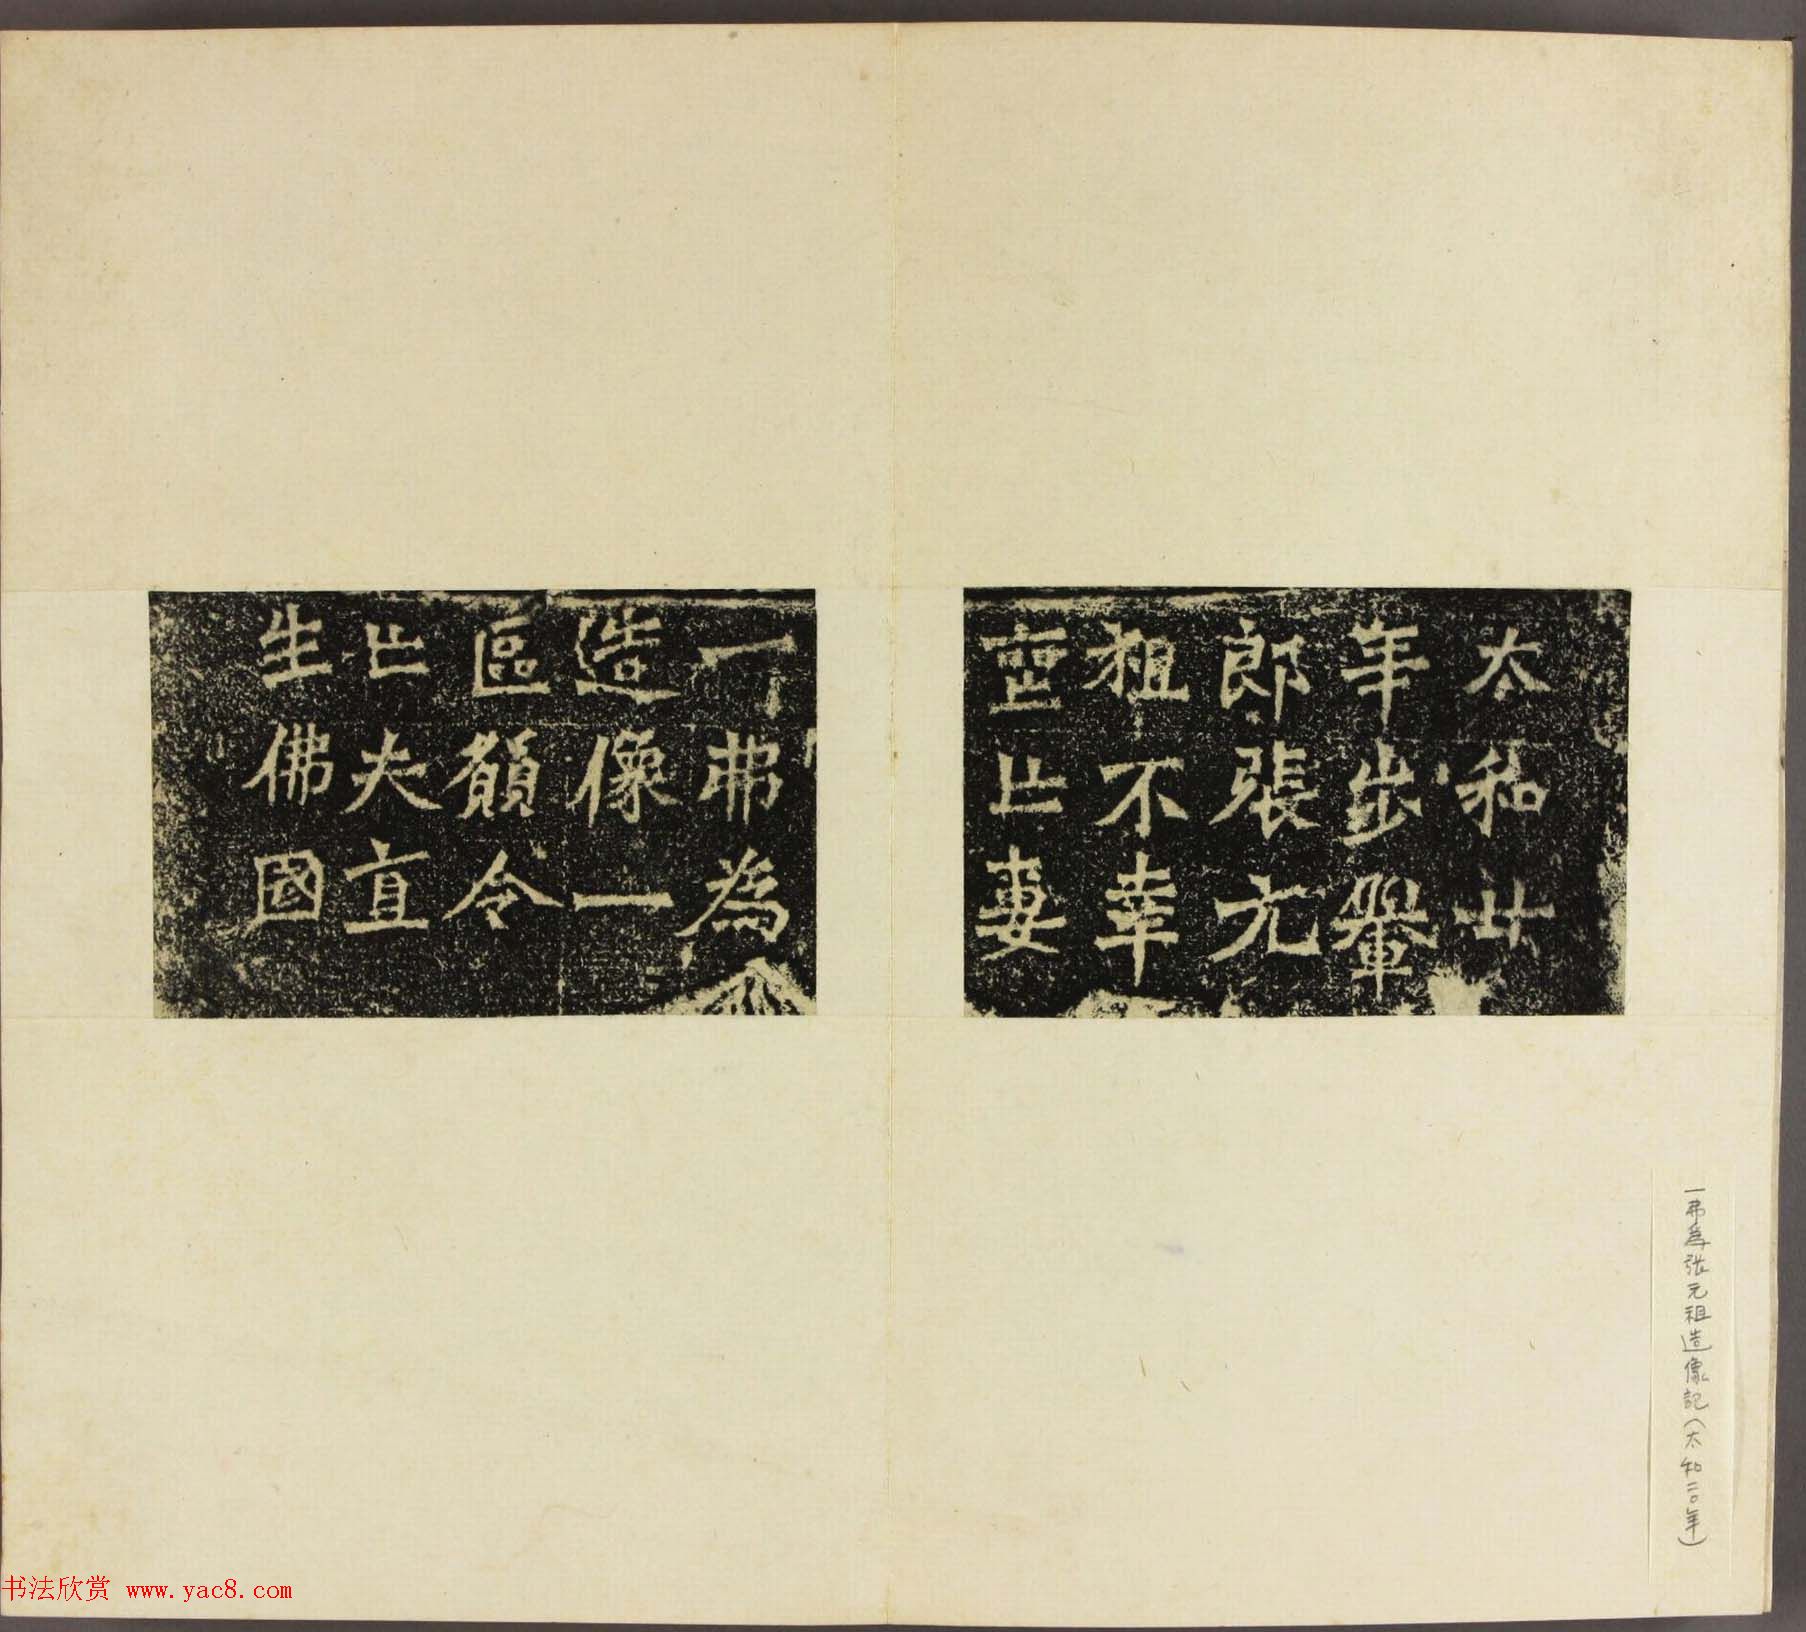 太和廿
年步轝
郎張元
祖不幸
喪亡妻
一弗為
造像一
區願令
亡夫直
生佛國
一弗為張元祖造像記(太和二〇年)
书法欣赏 www.yac8.com